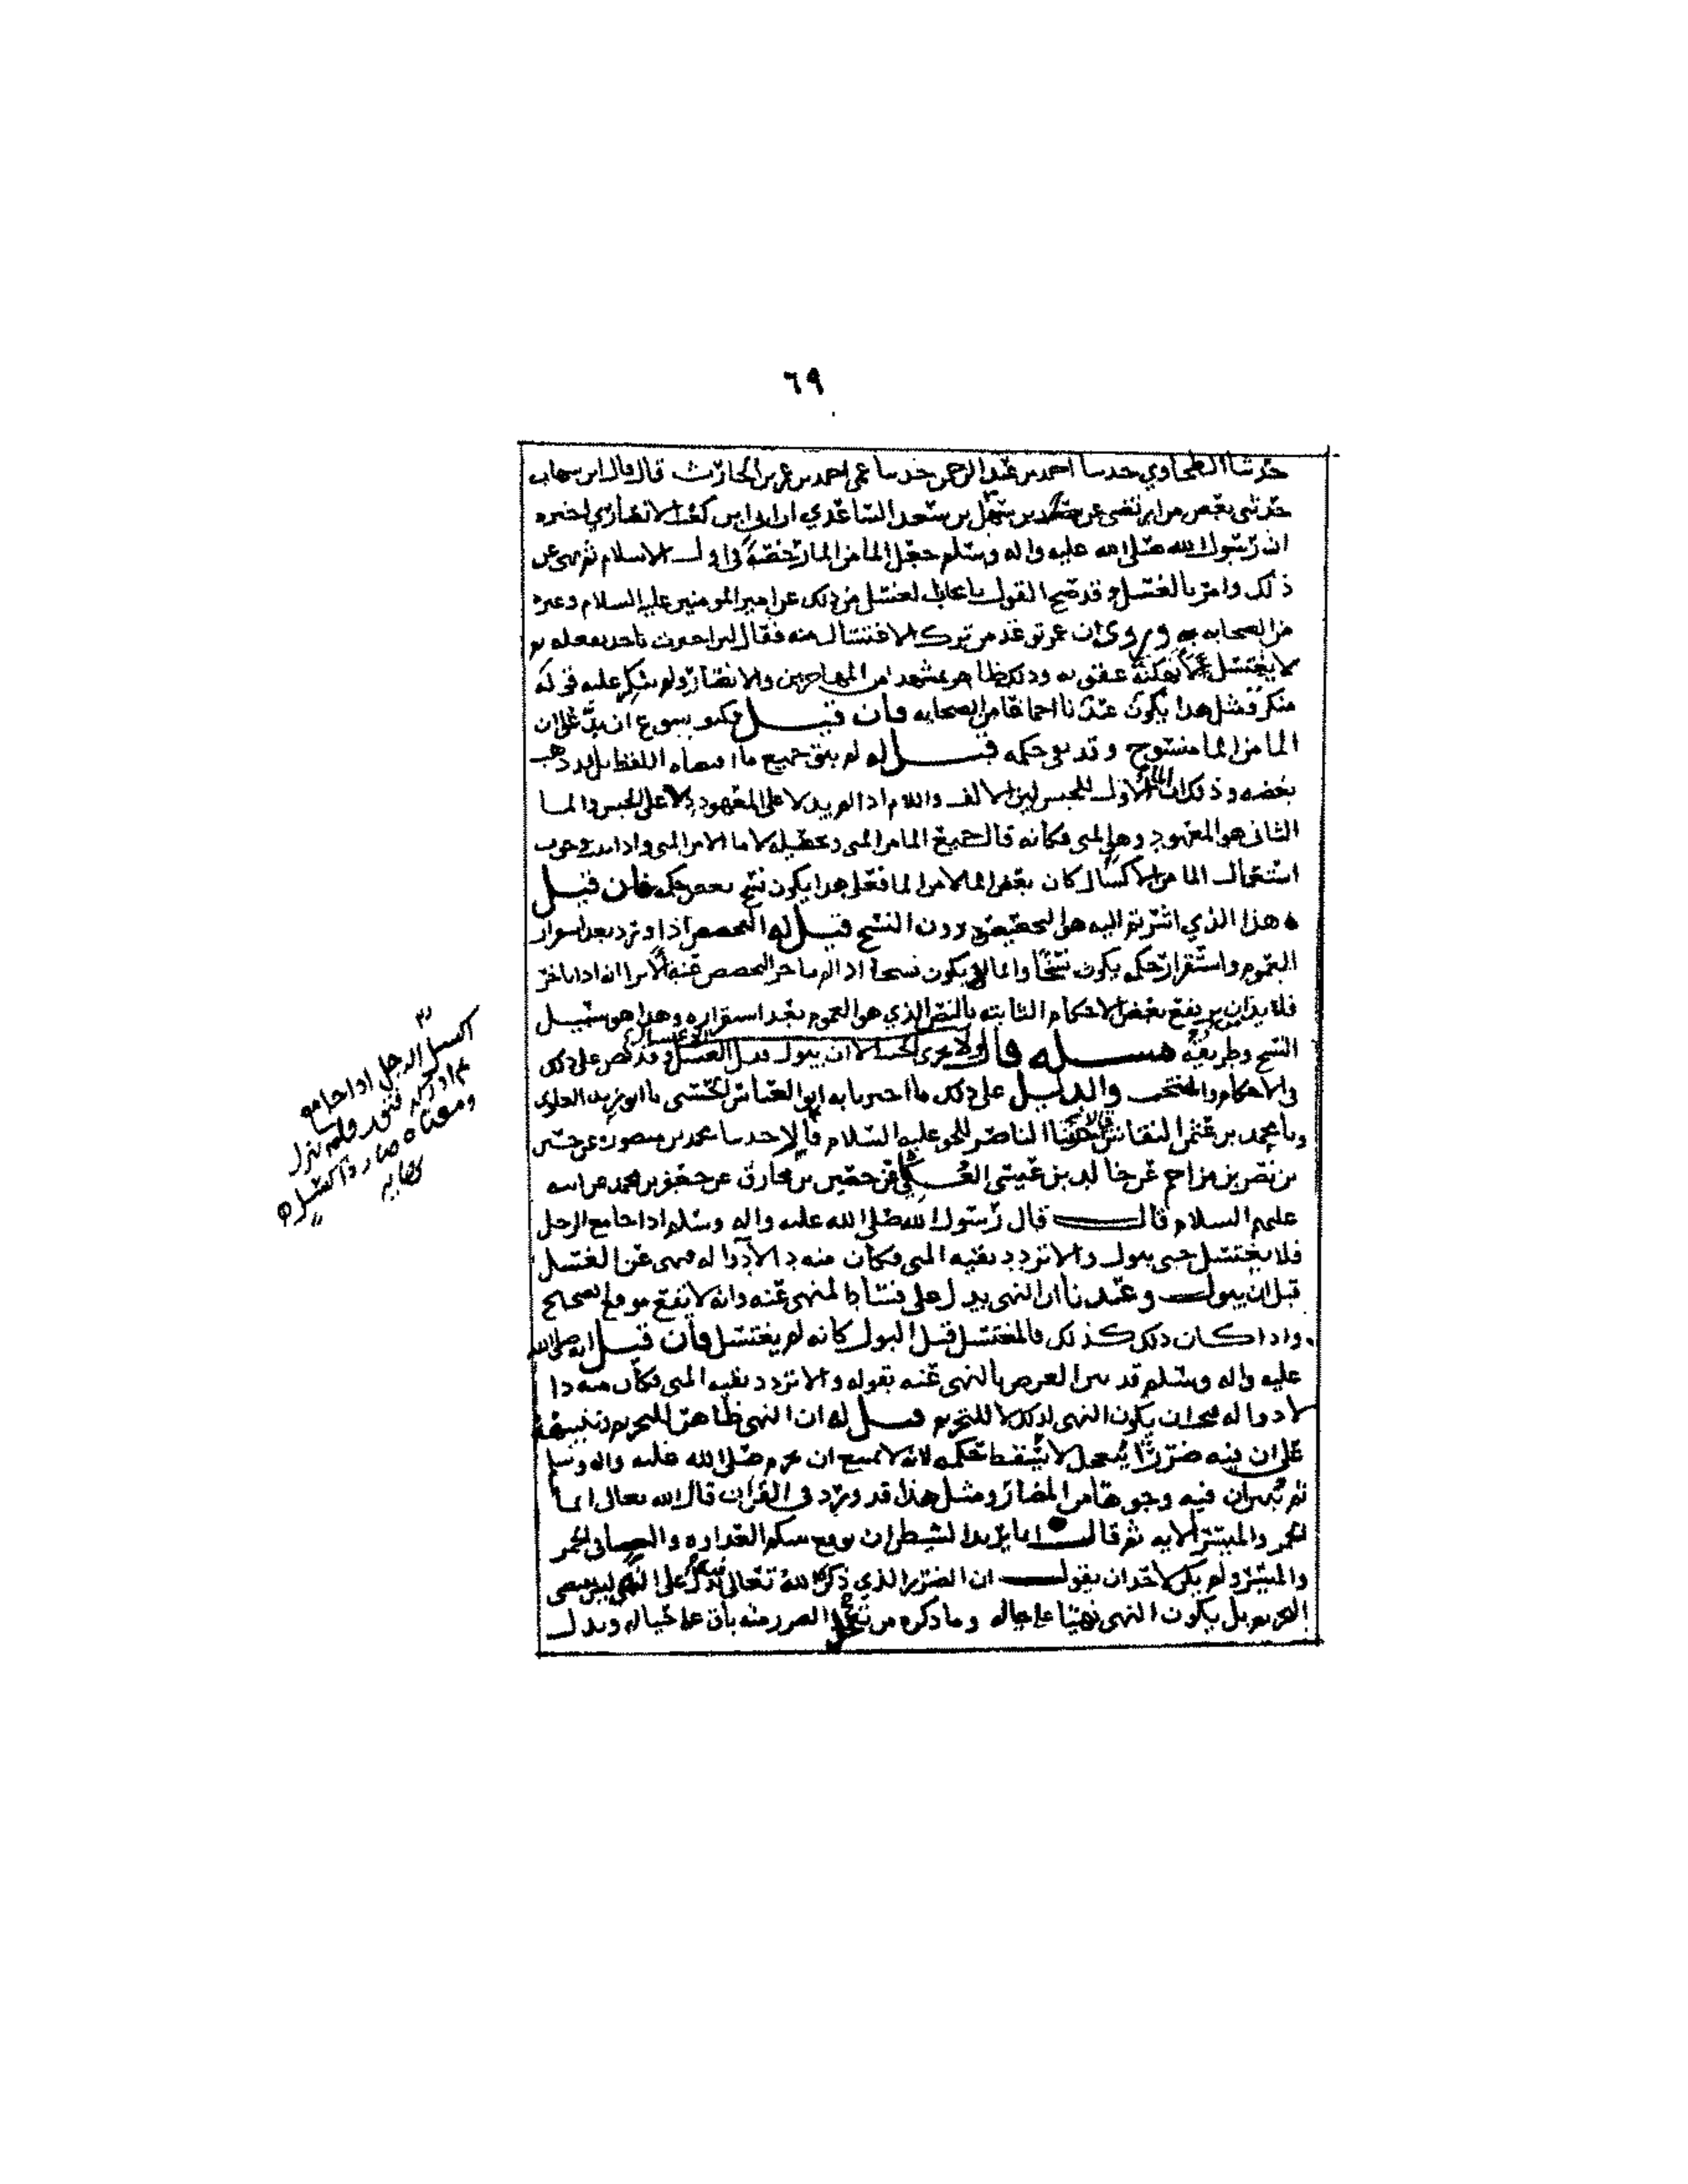 ٦٩
حدثنا الطحاوي حدسا احمد بن عبد الرحمن حدسا عمى احمد بن عمرو بن الحارث قال قال ابن سهاب
حدثني بعض من ارتضى عن سهل بن سعد الساعدي ان ابي ابن كعب الانصاري اخبره
ان رسول الله صلى الله عليه واله وسلم جعل الما من الما رخصة في اول الاسلام ثم نهى عن
ذلك وامر بالغسل وقد صح القول بايجاب الغسل من ذلك عن امير المومنين عليه السلام وغيره
من الصحابه وروى ان عمر توعد من ترك الاغتسال منه فقال لا اعرف باحد يفعله ثم
لا يغتسل الا نهكته عقوبه وذلك ظاهر بمشهد من المهاجرين والانصار ولم ينكر عليه قوله
منكر فمثل هذا يكون عندنا اجماعا من الصحابه فان قيل فكيف يسوغ ان يدعى ان
الما من الما منسوخ وقد بقى حكمه قيل له لم يبق جميع ما اقتضاه اللفظ بل قد ذهب
بعضه وذلك ان الما الاول للجنس لان الالف واللام اذا لم يدلا على المعهود دلا على الجنس والما
الثانى هو المعهود وهو المنى فكانه قال جميع الما من المنى
استعمال الما من الاكسال كان بعض الما لا من الما فعلى هذا يكون نسخ بعض حكمه فان قيل
هذا الذي اشرتم اليه هو التخصيص دون النسخ قيل له التخصيص اذا ورد بعد استقرار
العموم واستقرار حكمه يكون نسخا وانما لا يكون نسخا اذا لم يتاخر التخصيص عنه الا ترا انه اذا تاخر
فلا بد ان يرتفع بعض الاحكام الثابته بالنص الذي هو العموم بعد استقراره وهذا هو سبيل
النسخ وطريقه مسله قال ولا يجزى الجنب الاغتسال الا ان يبول قبل الغسل وقد نص على ذلك
في الاحكام والمنتخب والدليل على ذلك ما اخبرنا به ابو العباس الحسنى نا ابو زيد العلوى
ونا محمد بن عثمن النقاش قالا حدثنا الناصر للحق عليه السلام قال حدسا محمد بن منصور عن حسين
بن نصر بن مزاحم عن خالد بن عيسى العكلي عن حصين بن مخارق عن جعفر بن محمد عن ابيه
عليهم السلام قال قال رسول الله صلى الله عليه واله وسلم اذا جامع الرجل
فلا يغتسل حتى يبول والا تردد بقيه المنى فكان منه دا لا دوا له فنهى عن الغسل
قبل ان يبول وعندنا ان النهى يدل على فساد المنهى عنه وانه لا يقع موقع الصحيح
واذا كان ذلك كذلك فالمغتسل قبل البول كانه لم يغتسل فان قيل انه صلى الله
عليه واله وسلم قد بين الغرض بالنهى عنه بقوله والا تردد بقيه المنى فكان منه دا
لا دوا له فيجب ان يكون النهى لذلك لا للتحريم قيل له ان النهى ظاهره التحريم وتنبيهه
على ان فيه ضررا يحصل لا يسقط حكمه لانه لا يمتنع ان يحرم صلى الله عليه واله وسلم
ثم يبين ان فيه وجوها من المضار ومثل هذا قد ورد في القران قال الله تعالى انما
الخمر والميسر الايه ثم قال انما يريد الشيطان ان يوقع بينكم العداوه والبغضا في الخمر
والميسر ولم يكن لاحد ان يقول ان الضرر الذي ذكره الله تعالى يدل على ان النهى ليس بنهى
التحريم بل يكون النهى نهيا على حاله وما ذكره من الضرر منه باق على حياله ويدل
اكسل الرجل اذا جامع
ثم ادركه فتور فلم ينزل
ومعناه صار ذا كسل ه
نهايه